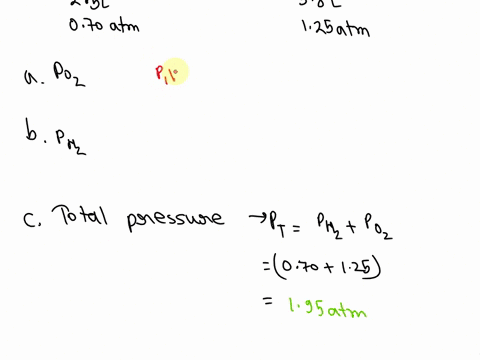 0.70 atm
1.25 atm
a. PO2 P1
b. PH2
c. Total pressure → PT = PH2 + PO2
= (0.70 + 1.25)
= 1.95 atm